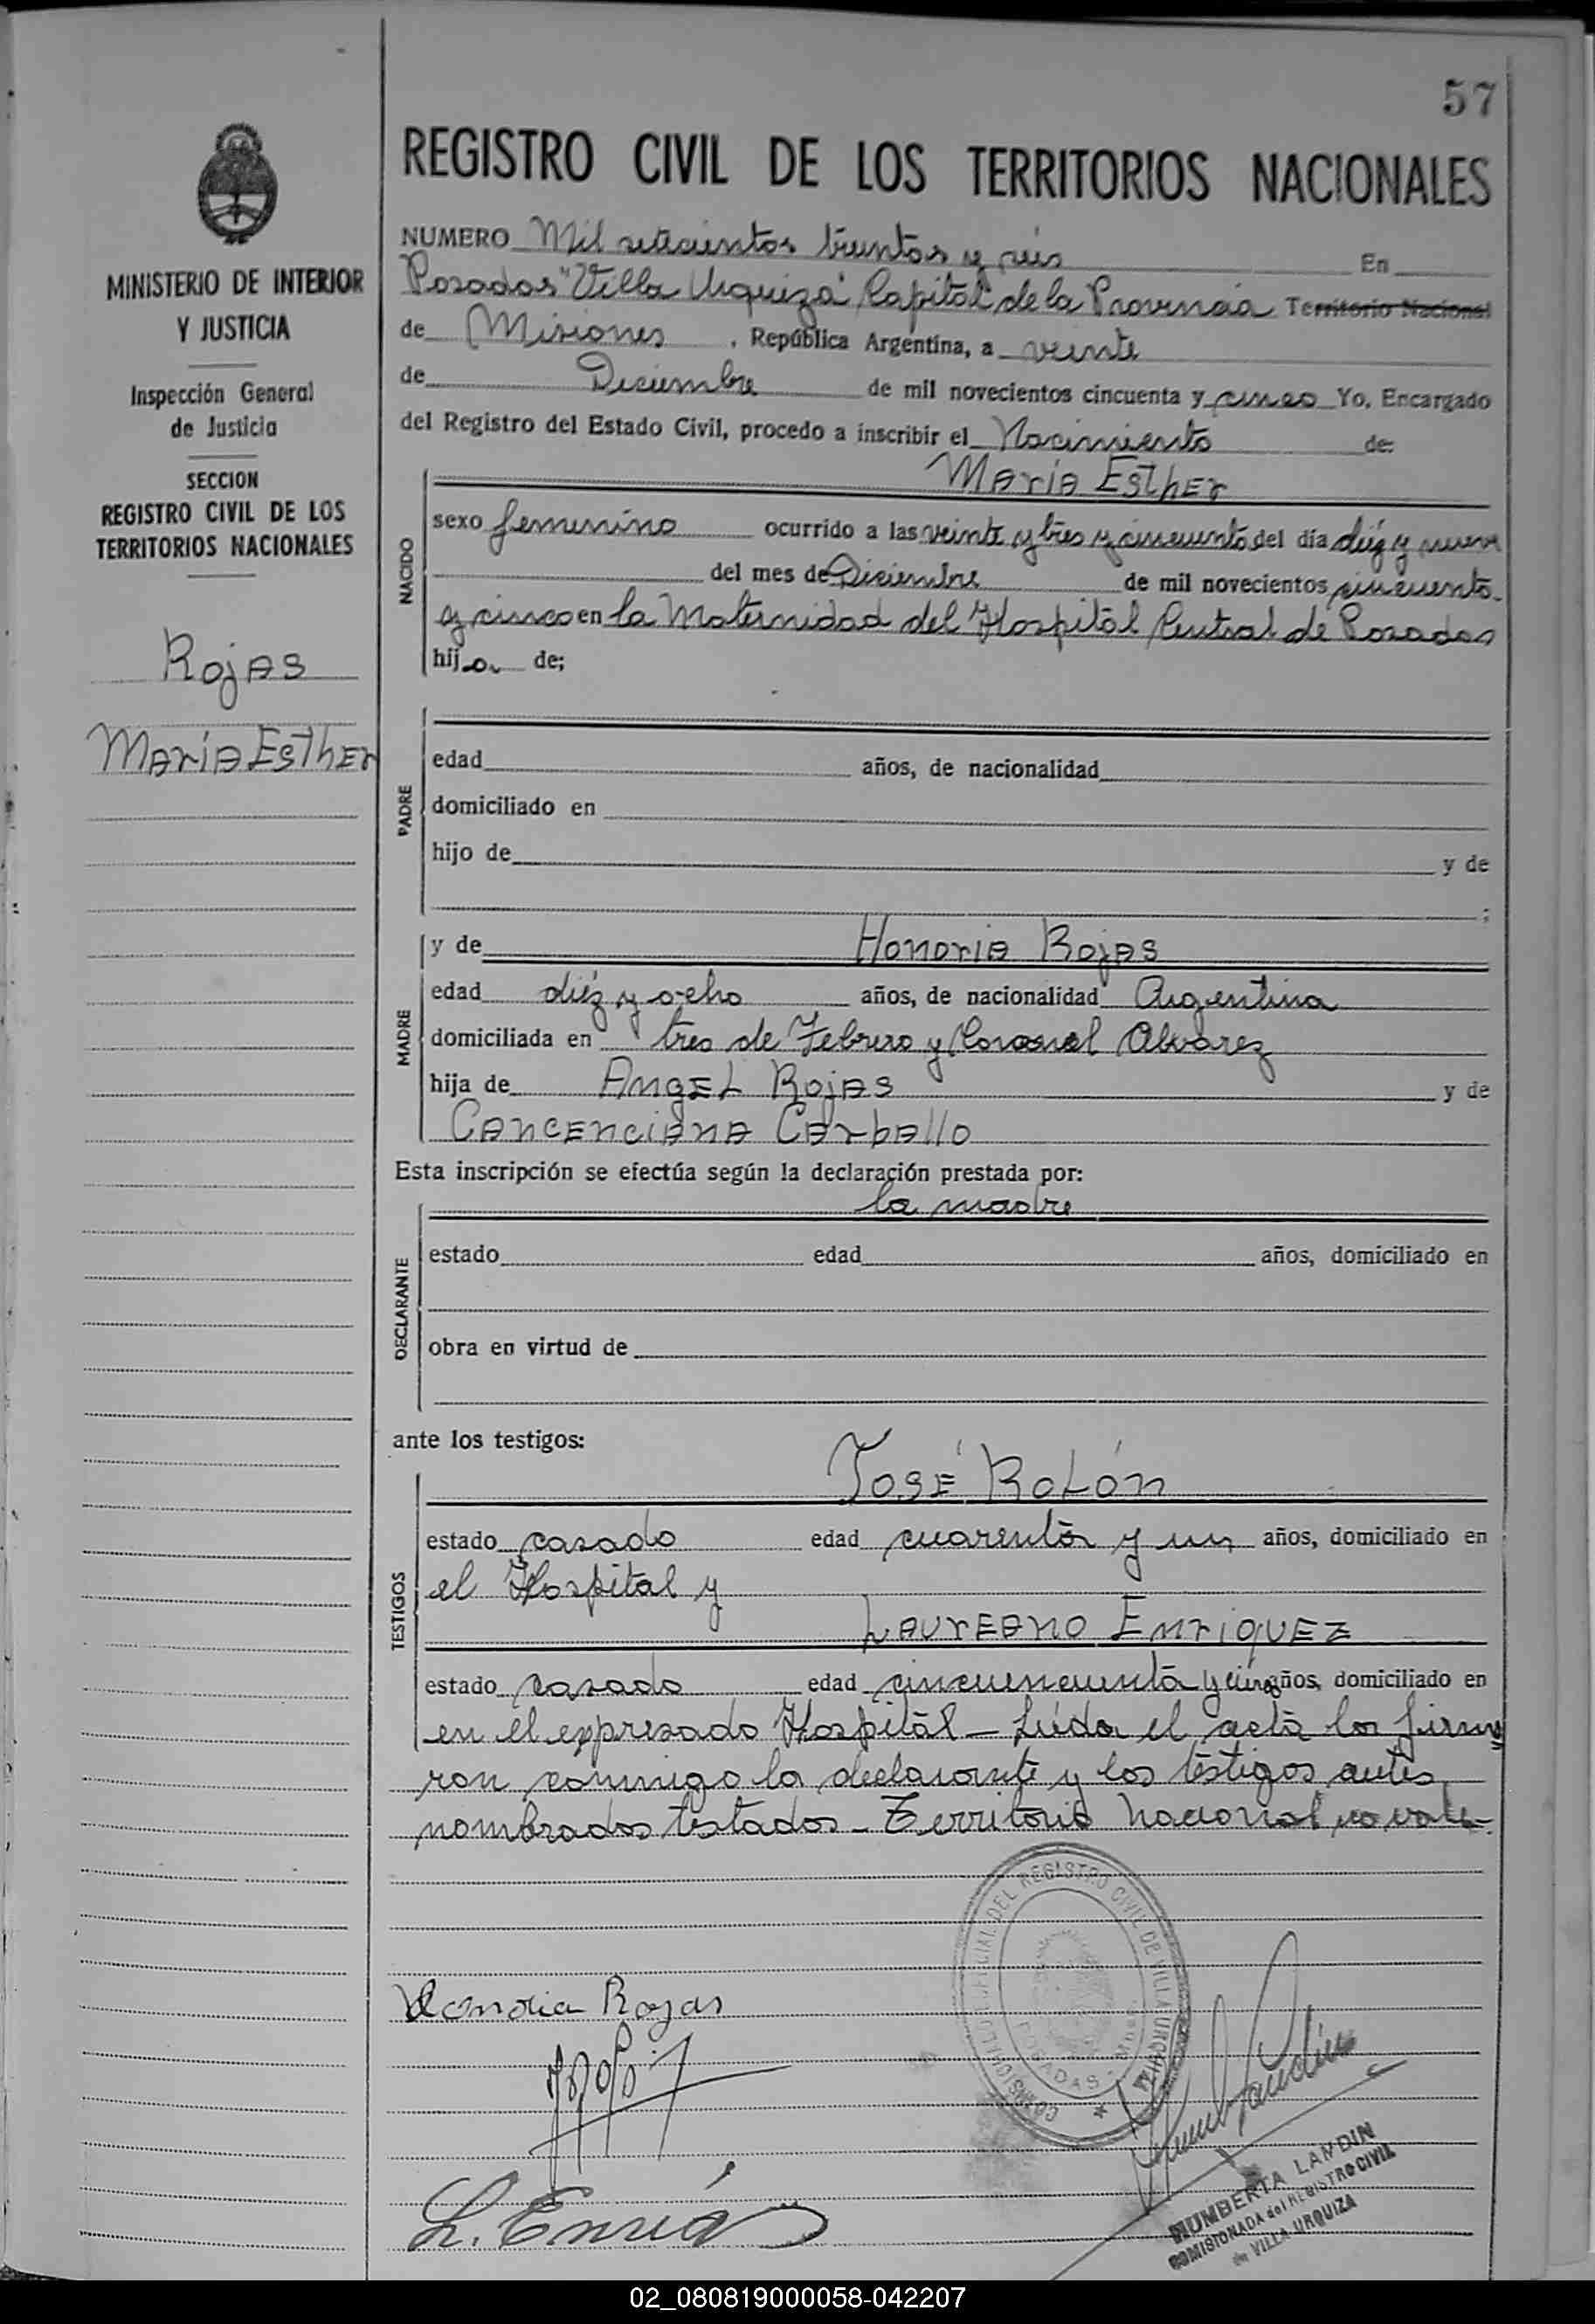 57
REGISTRO CIVIL DE LOS TERRITORIOS NACIONALES
MINISTERIO DE INTERIOR
Y JUSTICIA
Inspección General
de Justicia
SECCION
REGISTRO CIVIL DE LOS
TERRITORIOS NACIONALES
Rojas
María Esther
NUMERO Mil setecientos treintas y seis En
Posadas "Villa Urquiza" Capital de la Provincia Territorio Nacional
de Misiones , República Argentina, a veinte
de Diciembre de mil novecientos cincuenta y cinco Yo, Encargado
del Registro del Estado Civil, procedo a inscribir el Nacimiento de:
María Esther
NACIDO
sexo femenino ocurrido a las veinte y tres y cincuenta del día diéz y nueve
del mes de Diciembre de mil novecientos cincuenta
y cinco en la Maternidad del Hospital Central de Posadas
hija de;
PADRE
edad años, de nacionalidad
domiciliado en
hijo de y de
;
MADRE
y de Honoria Rojas
edad diéz y ocho años, de nacionalidad Argentina
domiciliada en tres de Febrero y Coronel Alvarez
hija de Angel Rojas y de
Cancenciana Carballo
Esta inscripción se efectúa según la declaración prestada por:
la madre
DECLARANTE
estado edad años, domiciliado en
obra en virtud de
ante los testigos:
José Rolón
TESTIGOS
estado casado edad cuarenta y un años, domiciliado en
el Hospital y
Laureano Enriquez
estado casado edad cincuencuenta y cinco años, domiciliado en
en el expresado Hospital - Leída el acta la firma
ron conmigo la declarante y los testigos antes
nombrados testados - Territorio Nacional no vale -
COMISIONADO ESPECIAL DEL REGISTRO CIVIL DE VILLA URQUIZA
POSADAS - Mnes
Honoria Rojas
L. Enri
HUMBERTA LANDIN
COMISIONADA del REGISTRO CIVIL
de VILLA URQUIZA
02_080819000058-042207